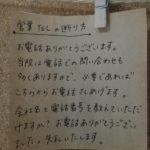 営業TELの断り方
お電話ありがとうございます。
当院は電話での問い合わせも
多くありますので、必要であれば
こちらからお電話さしあげます。
会社名と電話番号を教えていただ
けますか？お電話ありがとうござい
ました。失礼いたします。